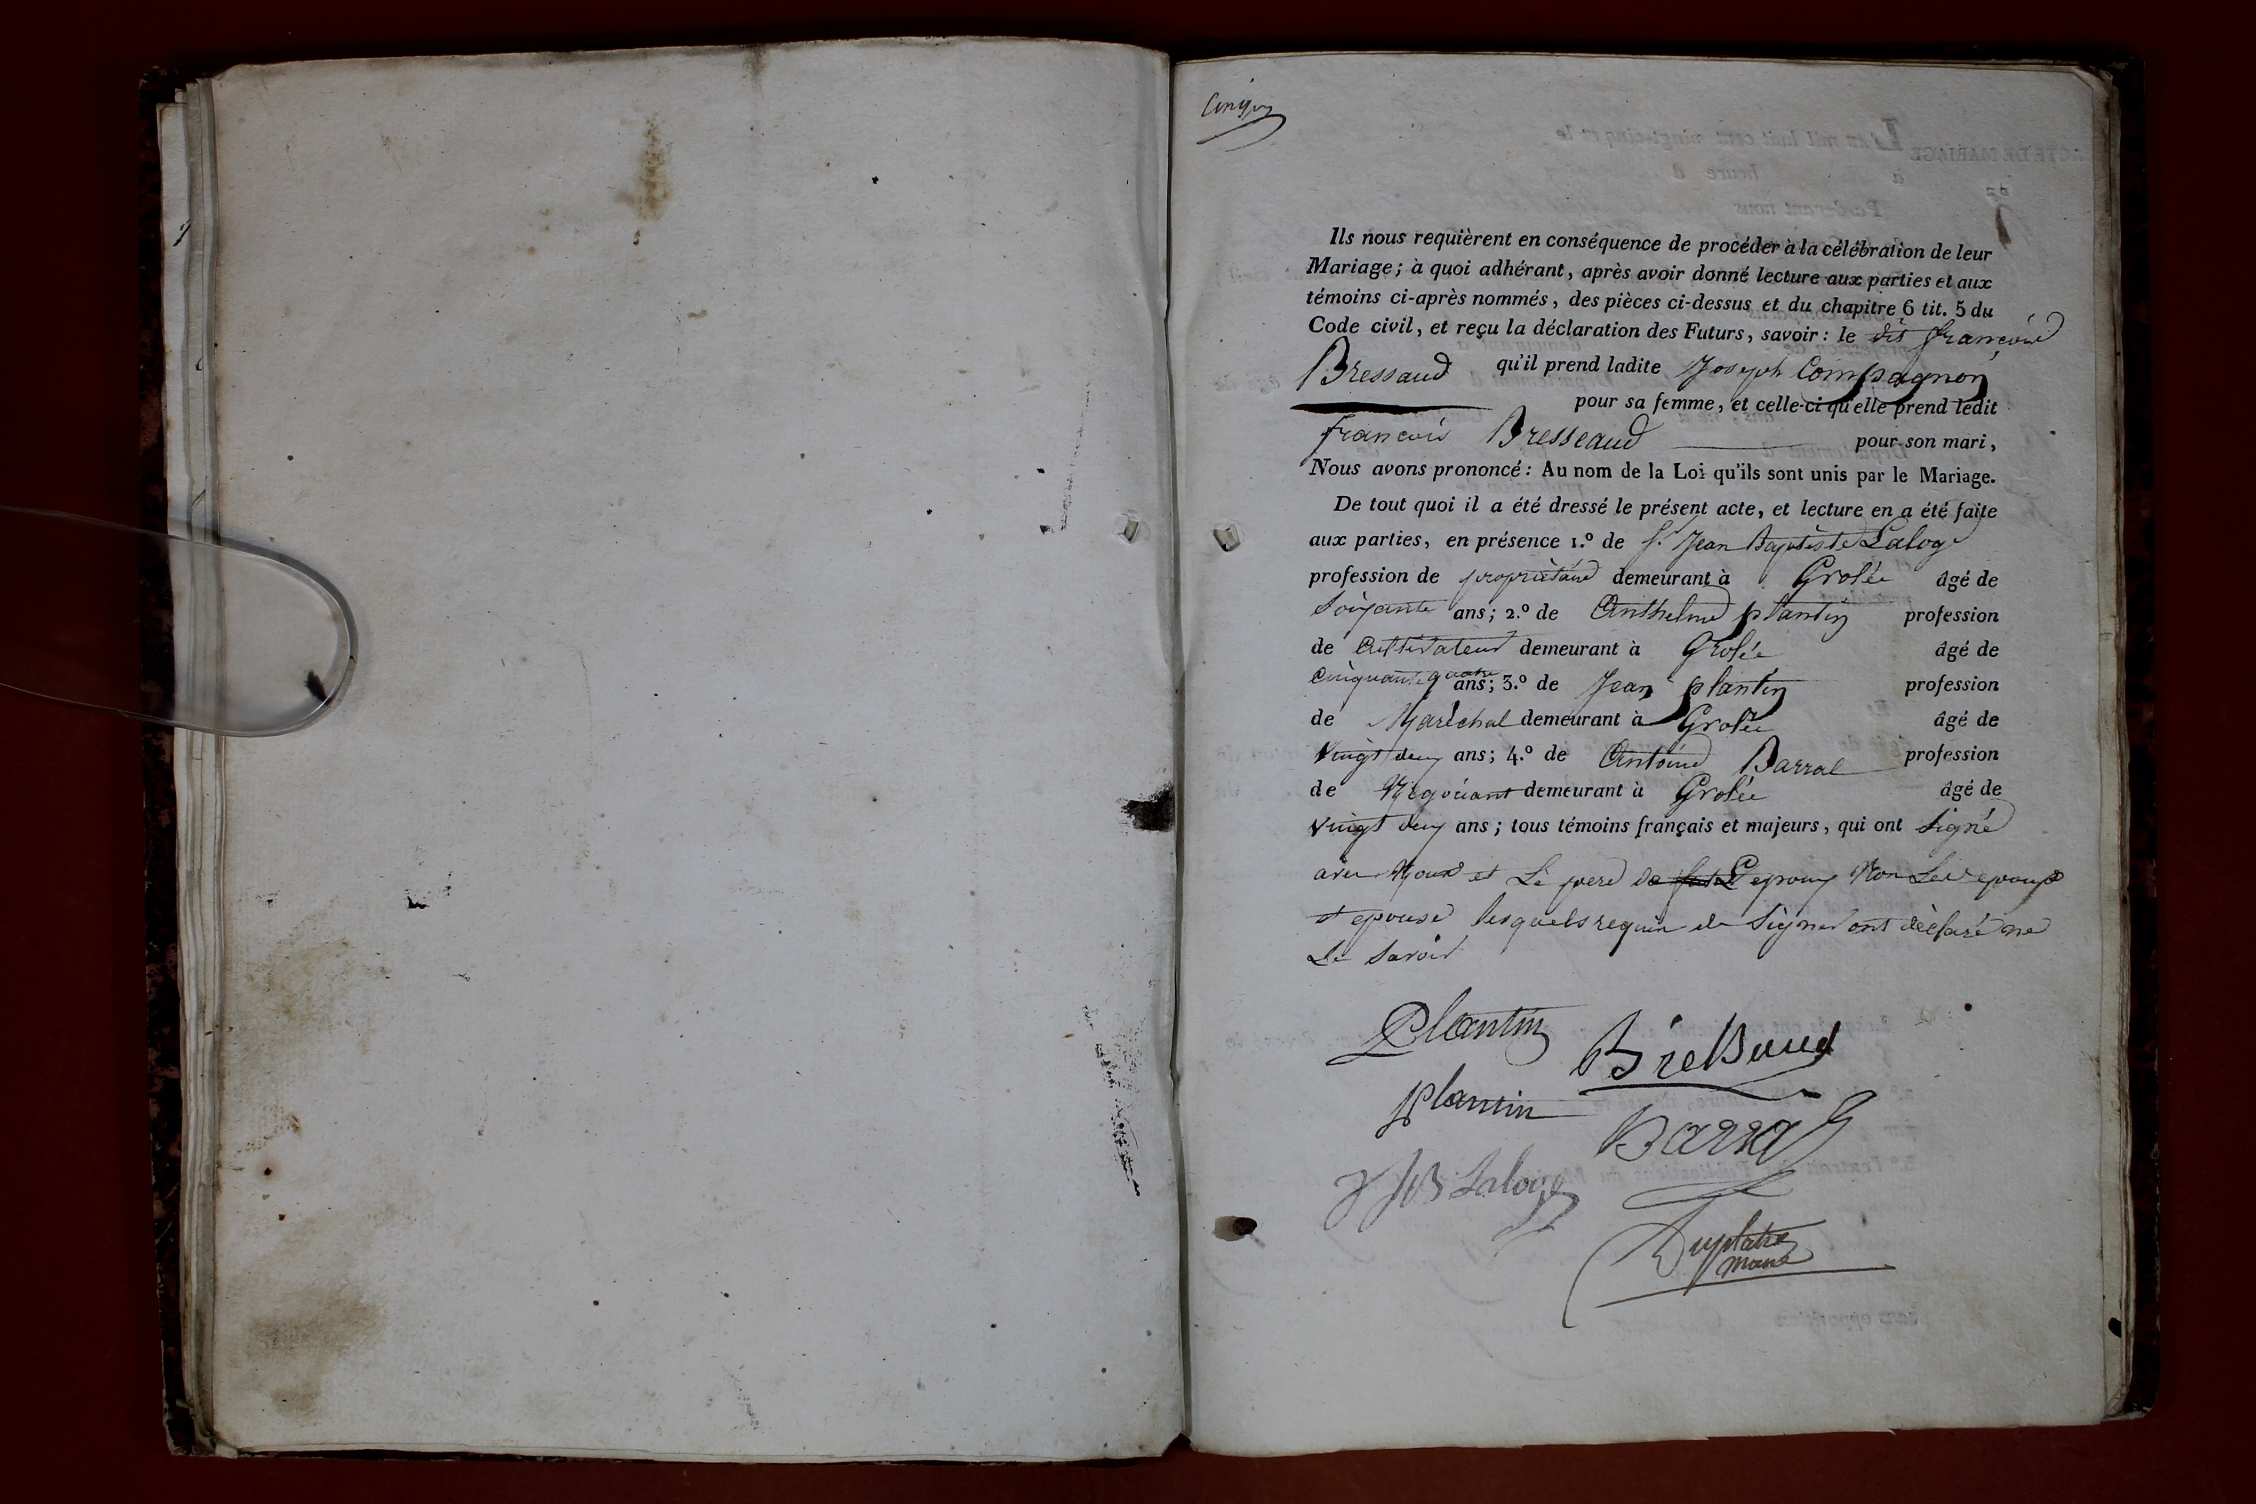 Ils nous requièrent en conséquence de procéder à la célébration de leur
Mariage; à quoi adhérant, après avoir donné lecture aux parties et aux
témoins ci-après nommés, des pièces ci-dessus et du chapitre 6 tit. 5 du
Code civil, et reçu la déclaration des Futurs, savoir: le dit francois
Bressaud qu'il prend ladite Joseph Compagnon
pour sa femme, et celle-ci qu'elle prend ledit
francois Bresseaud pour son mari,
Nous avons prononcé: Au nom de la Loi qu'ils sont unis par le Mariage.
De tout quoi il a été dressé le présent acte, et lecture en a été faite
aux parties, en présence 1.º de Sr Jean Baptiste Laloge
profession de propriétaire demeurant à Grolée âgé de
Soixante ans; 2.º de Anthelme plantin profession
de Cultivateur demeurant à Grolée âgé de
Cinquante quatre ans; 3.º de Jean plantin profession
de Maréchal demeurant à Grolée âgé de
Vingt deux ans; 4.º de Antoine Barral profession
de Négociant demeurant à Grolée âgé de
Vingt deux ans; tous témoins français et majeurs, qui ont Signé
avec Nous et Le pere de L'epoux Non Les epoux
et epouse lesquels requis de Signer ont déclaré ne
Le Savoir
Plantin
BreBaud
plantin
Barral
JB Laloge
Duplatre
maire